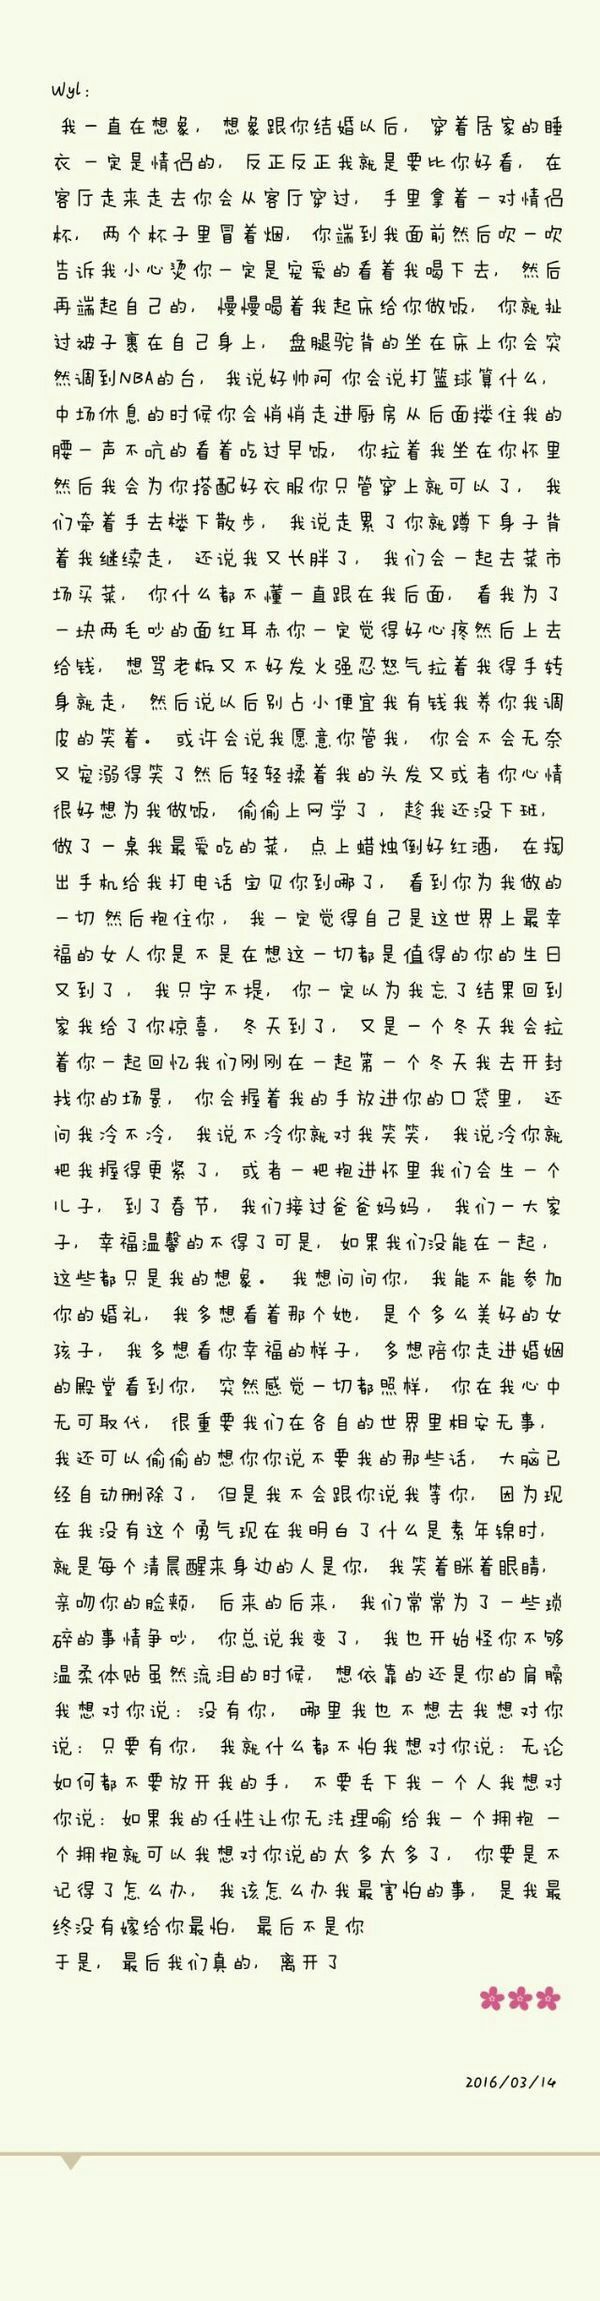 Wyl:
我一直在想象, 想象跟你结婚以后, 穿着居家的睡
衣 一定是情侣的, 反正反正我就是要比你好看, 在
客厅走来走去你会从客厅穿过, 手里拿着一对情侣
杯, 两个杯子里冒着烟, 你端到我面前然后吹一吹
告诉我小心烫你一定是宠爱的看着我喝下去, 然后
再端起自己的, 慢慢喝着我起床给你做饭, 你就扯
过被子裹在自己身上, 盘腿驼背的坐在床上你会突
然调到NBA的台, 我说好帅阿 你会说打篮球算什么,
中场休息的时候你会悄悄走进厨房从后面搂住我的
腰一声不吭的看着吃过早饭, 你拉着我坐在你怀里
然后我会为你搭配好衣服你只管穿上就可以了, 我
们牵着手去楼下散步, 我说走累了你就蹲下身子背
着我继续走, 还说我又长胖了, 我们会一起去菜市
场买菜, 你什么都不懂一直跟在我后面, 看我为了
一块两毛吵的面红耳赤你一定觉得好心疼然后上去
给钱, 想骂老板又不好发火强忍怒气拉着我得手转
身就走, 然后说以后别占小便宜我有钱我养你我调
皮的笑着。 或许会说我愿意你管我, 你会不会无奈
又宠溺得笑了然后轻轻揉着我的头发又或者你心情
很好想为我做饭, 偷偷上网学了, 趁我还没下班,
做了一桌我最爱吃的菜, 点上蜡烛倒好红酒, 在掏
出手机给我打电话 宝贝你到哪了, 看到你为我做的
一切 然后抱住你, 我一定觉得自己是这世界上最幸
福的女人你是不是在想这一切都是值得的你的生日
又到了, 我只字不提, 你一定以为我忘了结果回到
家我给了你惊喜, 冬天到了, 又是一个冬天我会拉
着你一起回忆我们刚刚在一起第一个冬天我去开封
找你的场景, 你会握着我的手放进你的口袋里, 还
问我冷不冷, 我说不冷你就对我笑笑, 我说冷你就
把我握得更紧了, 或者一把抱进怀里我们会生一个
儿子, 到了春节, 我们接过爸爸妈妈, 我们一大家
子, 幸福温馨的不得了可是, 如果我们没能在一起,
这些都只是我的想象。 我想问问你, 我能不能参加
你的婚礼, 我多想看着那个她, 是个多么美好的女
孩子, 我多想看你幸福的样子, 多想陪你走进婚姻
的殿堂看到你, 突然感觉一切都照样, 你在我心中
无可取代, 很重要我们在各自的世界里相安无事,
我还可以偷偷的想你你说不要我的那些话, 大脑已
经自动删除了, 但是我不会跟你说我等你, 因为现
在我没有这个勇气现在我明白了什么是素年锦时,
就是每个清晨醒来身边的人是你, 我笑着眯着眼睛,
亲吻你的脸颊, 后来的后来, 我们常常为了一些琐
碎的事情争吵, 你总说我变了, 我也开始怪你不够
温柔体贴虽然流泪的时候, 想依靠的还是你的肩膀
我想对你说: 没有你, 哪里我也不想去我想对你
说: 只要有你, 我就什么都不怕我想对你说: 无论
如何都不要放开我的手, 不要丢下我一个人我想对
你说: 如果我的任性让你无法理喻 给我一个拥抱 一
个拥抱就可以我想对你说的太多太多了, 你要是不
记得了怎么办, 我该怎么办我最害怕的事, 是我最
终没有嫁给你最怕, 最后不是你
于是, 最后我们真的, 离开了
2016/03/14